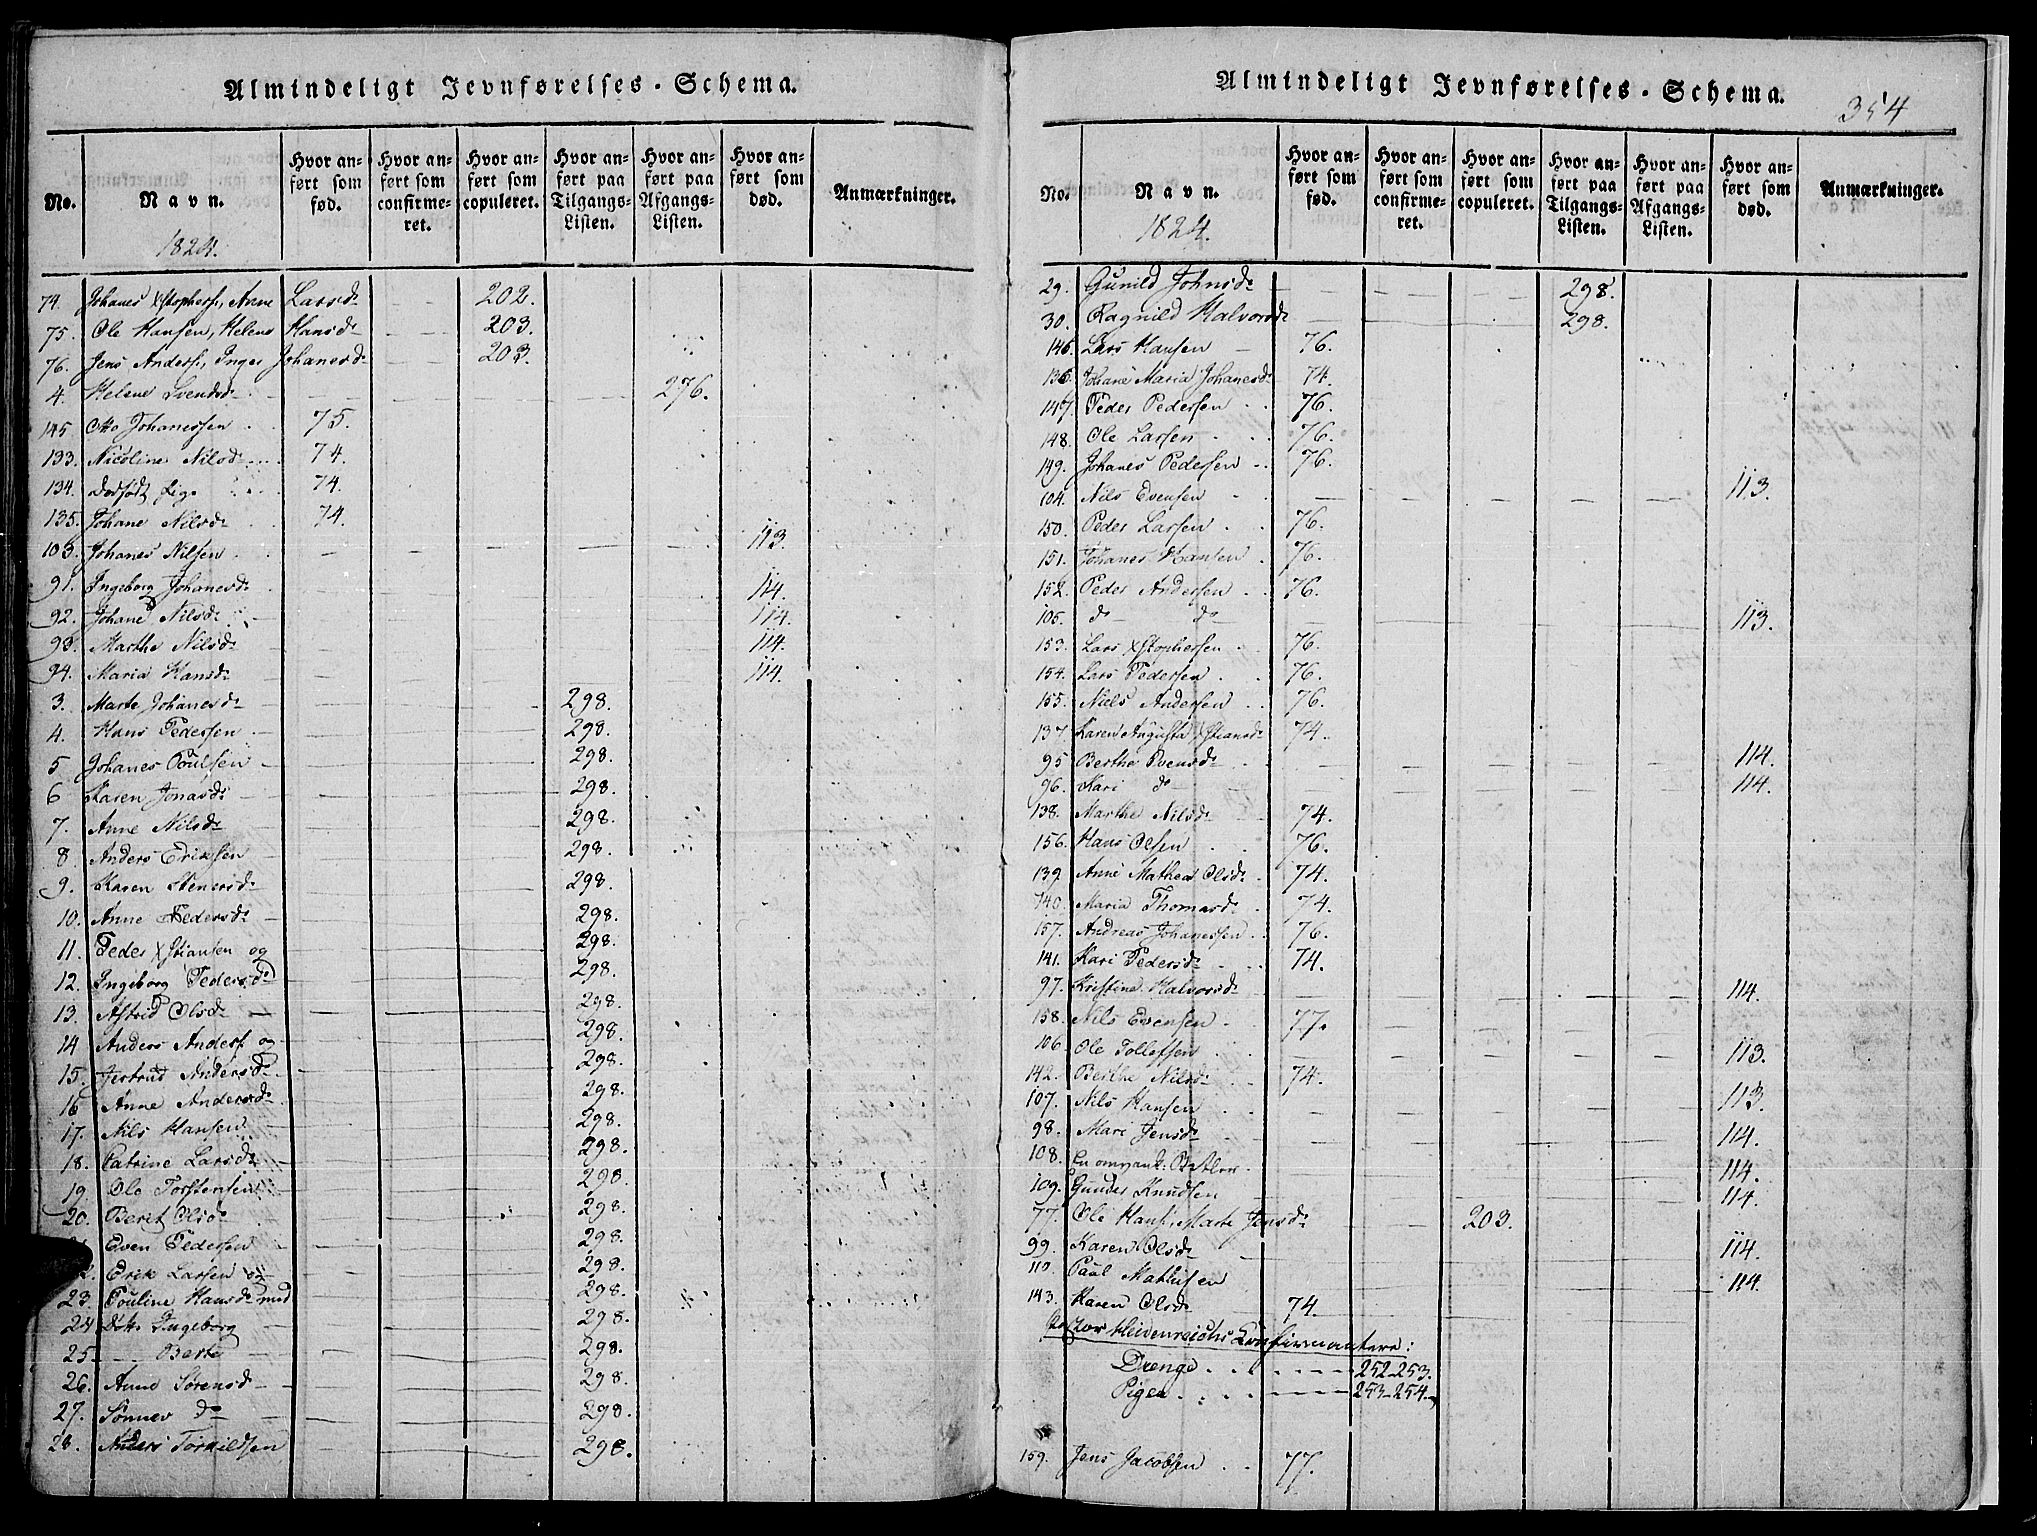 Almindeligt Jevnførelses-Schema.
No. Navn. Hvor anført som fød. Hvor anført som confirmeret. Hvor anført som copuleret. Hvor anført paa Tilgangs-Listen. Hvor anført paa Afgangs-Listen. Hvor anført som død. Anmærkninger.
1824.
74. Johanes Xstophers., Anne Larsd. 202.
75. Ole Hansen, Helene Hansd. 203.
76. Jens Anders., Inger Johanesd. 203.
4. Helene Svendsd. 276.
145 Otto Johanessen 75.
133. Nicoline Nilsd. 74.
134. Dødfødt Pige 74.
135. Johane Nilsd. 74.
103. Johanes Nilsen 113.
91. Ingeborg Johanesd. 114.
92. Johane Nilsd. 114.
93. Marthe Nilsd. 114.
94. Maria Hansd. 114.
3. Marte Johanesd. 298.
4. Hans Pedersen 298.
5 Johanes Poulsen 298.
6 Karen Jonasd. 298.
7. Anne Nilsd. 298.
8. Anders Eriksen 298.
9. Karen Stenersd. 298.
10. Anne Pedersd. 298.
11. Peder Xstiansen og 298.
12. Ingeborg Pedersd. 298.
13. Astrid Olsd. 298.
14 Anders Anders. og 298.
15. Jertrud Andersd. 298.
16 Anne Andersd. 298.
17. Nils Hansen 298.
18. Catrine Larsd. 298.
19. Ole Torstensen 298.
20. Berit Olsd. 298.
Even Pedersen 298.
2. Erik Larsen og 298.
23. Pouline Hansd. med 298.
24 Dtr. Ingeborg 298.
25 Berte 298.
26. Anne Sørensd. 298.
27. Sønnev do 298.
28. Anders Torkildsen 298.
Almindeligt Jevnførelses-Schema.
354
No. Navn. Hvor anført som fød. Hvor anført som confirmeret. Hvor anført som copuleret. Hvor anført paa Tilgangs-Listen. Hvor anført paa Afgangs-Listen. Hvor anført som død. Anmærkninger.
1824.
29. Gunild Johnsd. 298.
30. Ragnild Halvorsd. 298.
146. Lars Hansen 76.
136. Johane Maria Johanesd. 74.
147. Peder Pedersen 76.
148. Ole Larsen 76.
149. Johanes Pedersen 76.
104. Nils Evensen 113.
150. Peder Larsen 76.
151. Johanes Hansen 76.
152. Peder Andersen 76.
105. do do 113.
153. Lars Xstophersen 76.
154. Lars Pedersen 76.
155. Niels Andersen 76.
137. Karen Augusta Xstiansd. 74.
95 Berthe Evensd. 114.
96. Kari do 114.
138. Marthe Nilsd. 74.
156. Hans Olsen 76.
139. Anne Mathea Olsd. 74.
140. Maria Thomasd. 74.
157. Andreas Johanessen 76.
141. Kari Pedersd. 74.
97. Kristine Halvorsd. 114.
158. Nils Evensen 77.
106. Ole Tollefsen 113.
142. Berthe Nilsd. 74.
107. Nils Hansen 113.
98. Mari Jensd. 114.
108. En omvank. Betler 114.
109. Gunder Knudsen 114.
77. Ole Hans., Marte Jensd. 203.
99. Karen Olsd. 114.
110. Paul Mathisen 114.
143. Karen Olsd. 74.
Pastor Heidenreichs Confirmantere:
Drenge 252-253.
Piger 253-254.
159. Jens Jacobsen 77.